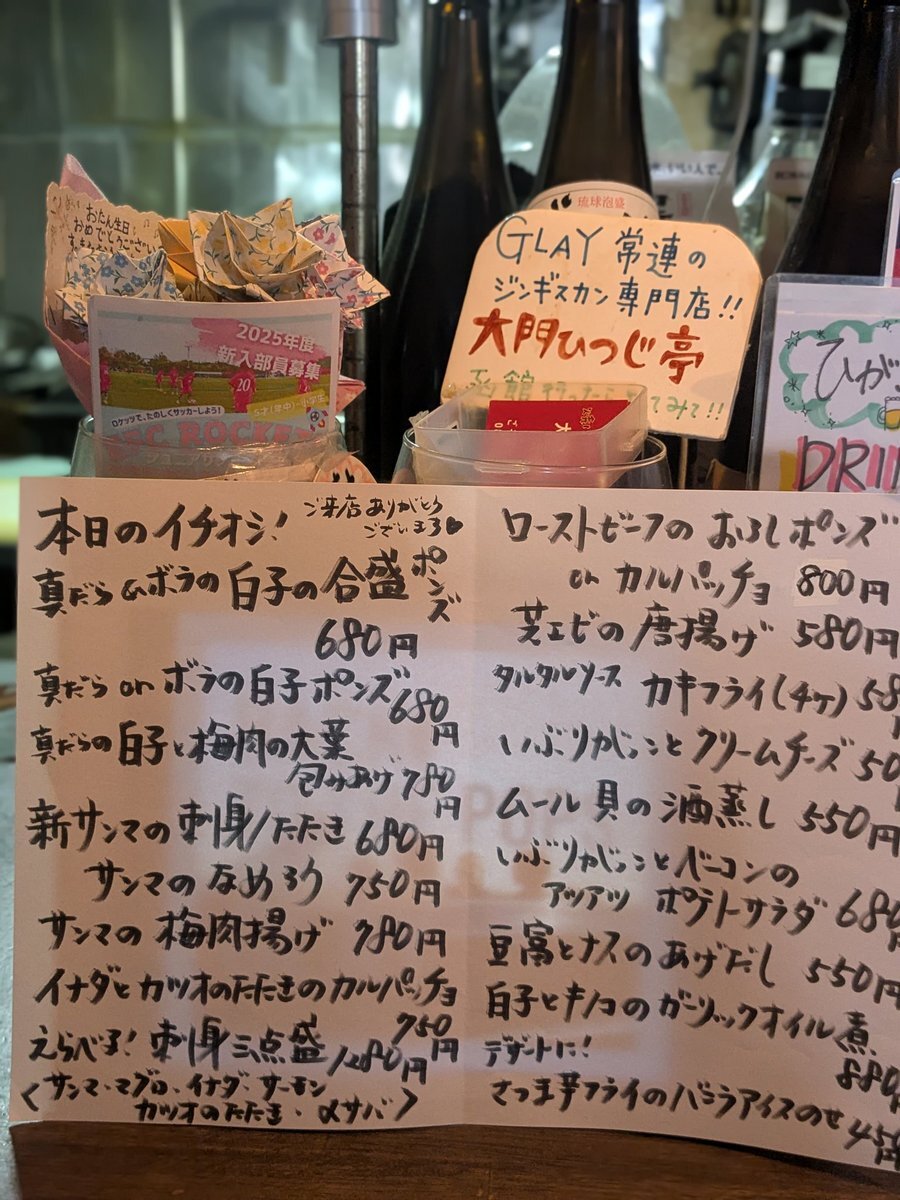 おたん生日
おめでとうござい
2025年度
新入部員募集
20
5才(年中)~小学生
ロケッツで、たのしくサッカーしよう!
琉球泡盛
GLAY 常連の
ジンギスカン専門店!!
大門ひつじ亭
てみて!!
ひが
DRI
本日のイチオシ!
ご来店ありがとう
ございます♥
真だら&ボラの白子の合盛ポンズ
680円
真だら or ボラの白子ポンズ 680円
真だらの白子と梅肉の大葉
包みあげ 780円
新サンマの刺身/たたき 680円
サンマのなめろう 750円
サンマの梅肉揚げ 780円
イナダとカツオのたたきのカルパッチョ
750円
えらべる!刺身三点盛 1280円
<サンマ・マグロ・イナダ・サーモン
カツオのたたき・〆サバ>
ローストビーフのおろしポンズ
or カルパッチョ 800円
芝エビの唐揚げ 580円
タルタルソース カキフライ(4ケ) 58
いぶりがっことクリームチーズ 50
ムール貝の酒蒸し 550円
いぶりがっことベーコンの
アツアツ ポテトサラダ 680円
豆富とナスのあげだし 550円
白子とキノコのガーリックオイル煮
880円
デザートに!
さつま芋フライのバニラアイスのせ
450円